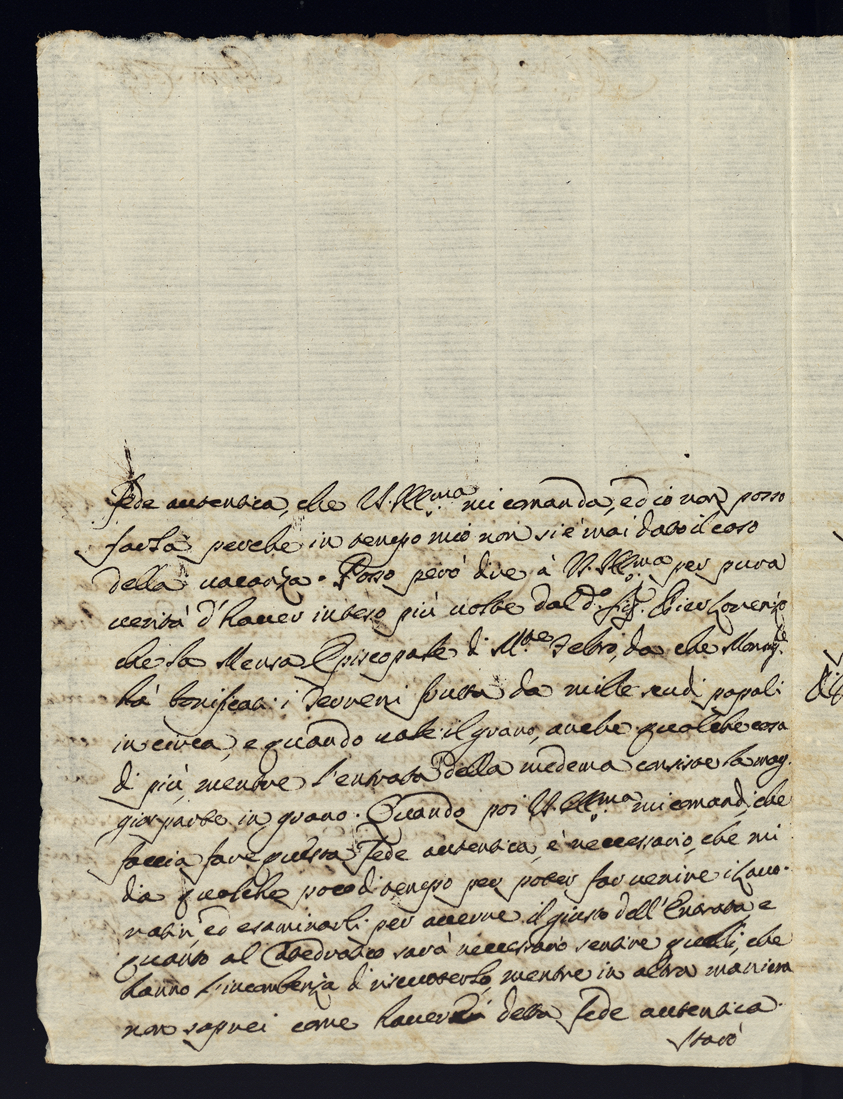 fede autentica, che V.S. Ill.ma mi comanda, ed io non posso
farla perche in tempo mio non si è mai dato il caso
della vacanza. Posso però dire à V.S. Ill.ma per pura
verità d'haver inteso più volte dal d.o Sig.r Lorenzo
che la Mensa Episcopale di M.te Feltro, da che Mons.re
hà bonificati i Terreni frutta da mille scudi papali
in circa, e quando vale il grano, anche qualche cosa
di più, mentre l'entrata della medema consiste la mag-
gior parte in grano. Quando poi V.S. Ill.ma mi comandi, che
faccia fare questa fede autentica, è necessario, che mi
dia qualche poco di tempo per poter far venire i Lavo-
ratori, ed esaminarli per averne il giusto dell'Entrata e
quanto al Catedratico sarà necessario sentire quelli, che
hanno l'incombenza di riscuoterlo, mentre in altra maniera
non saprei come haver detta fede autentica.
Starò